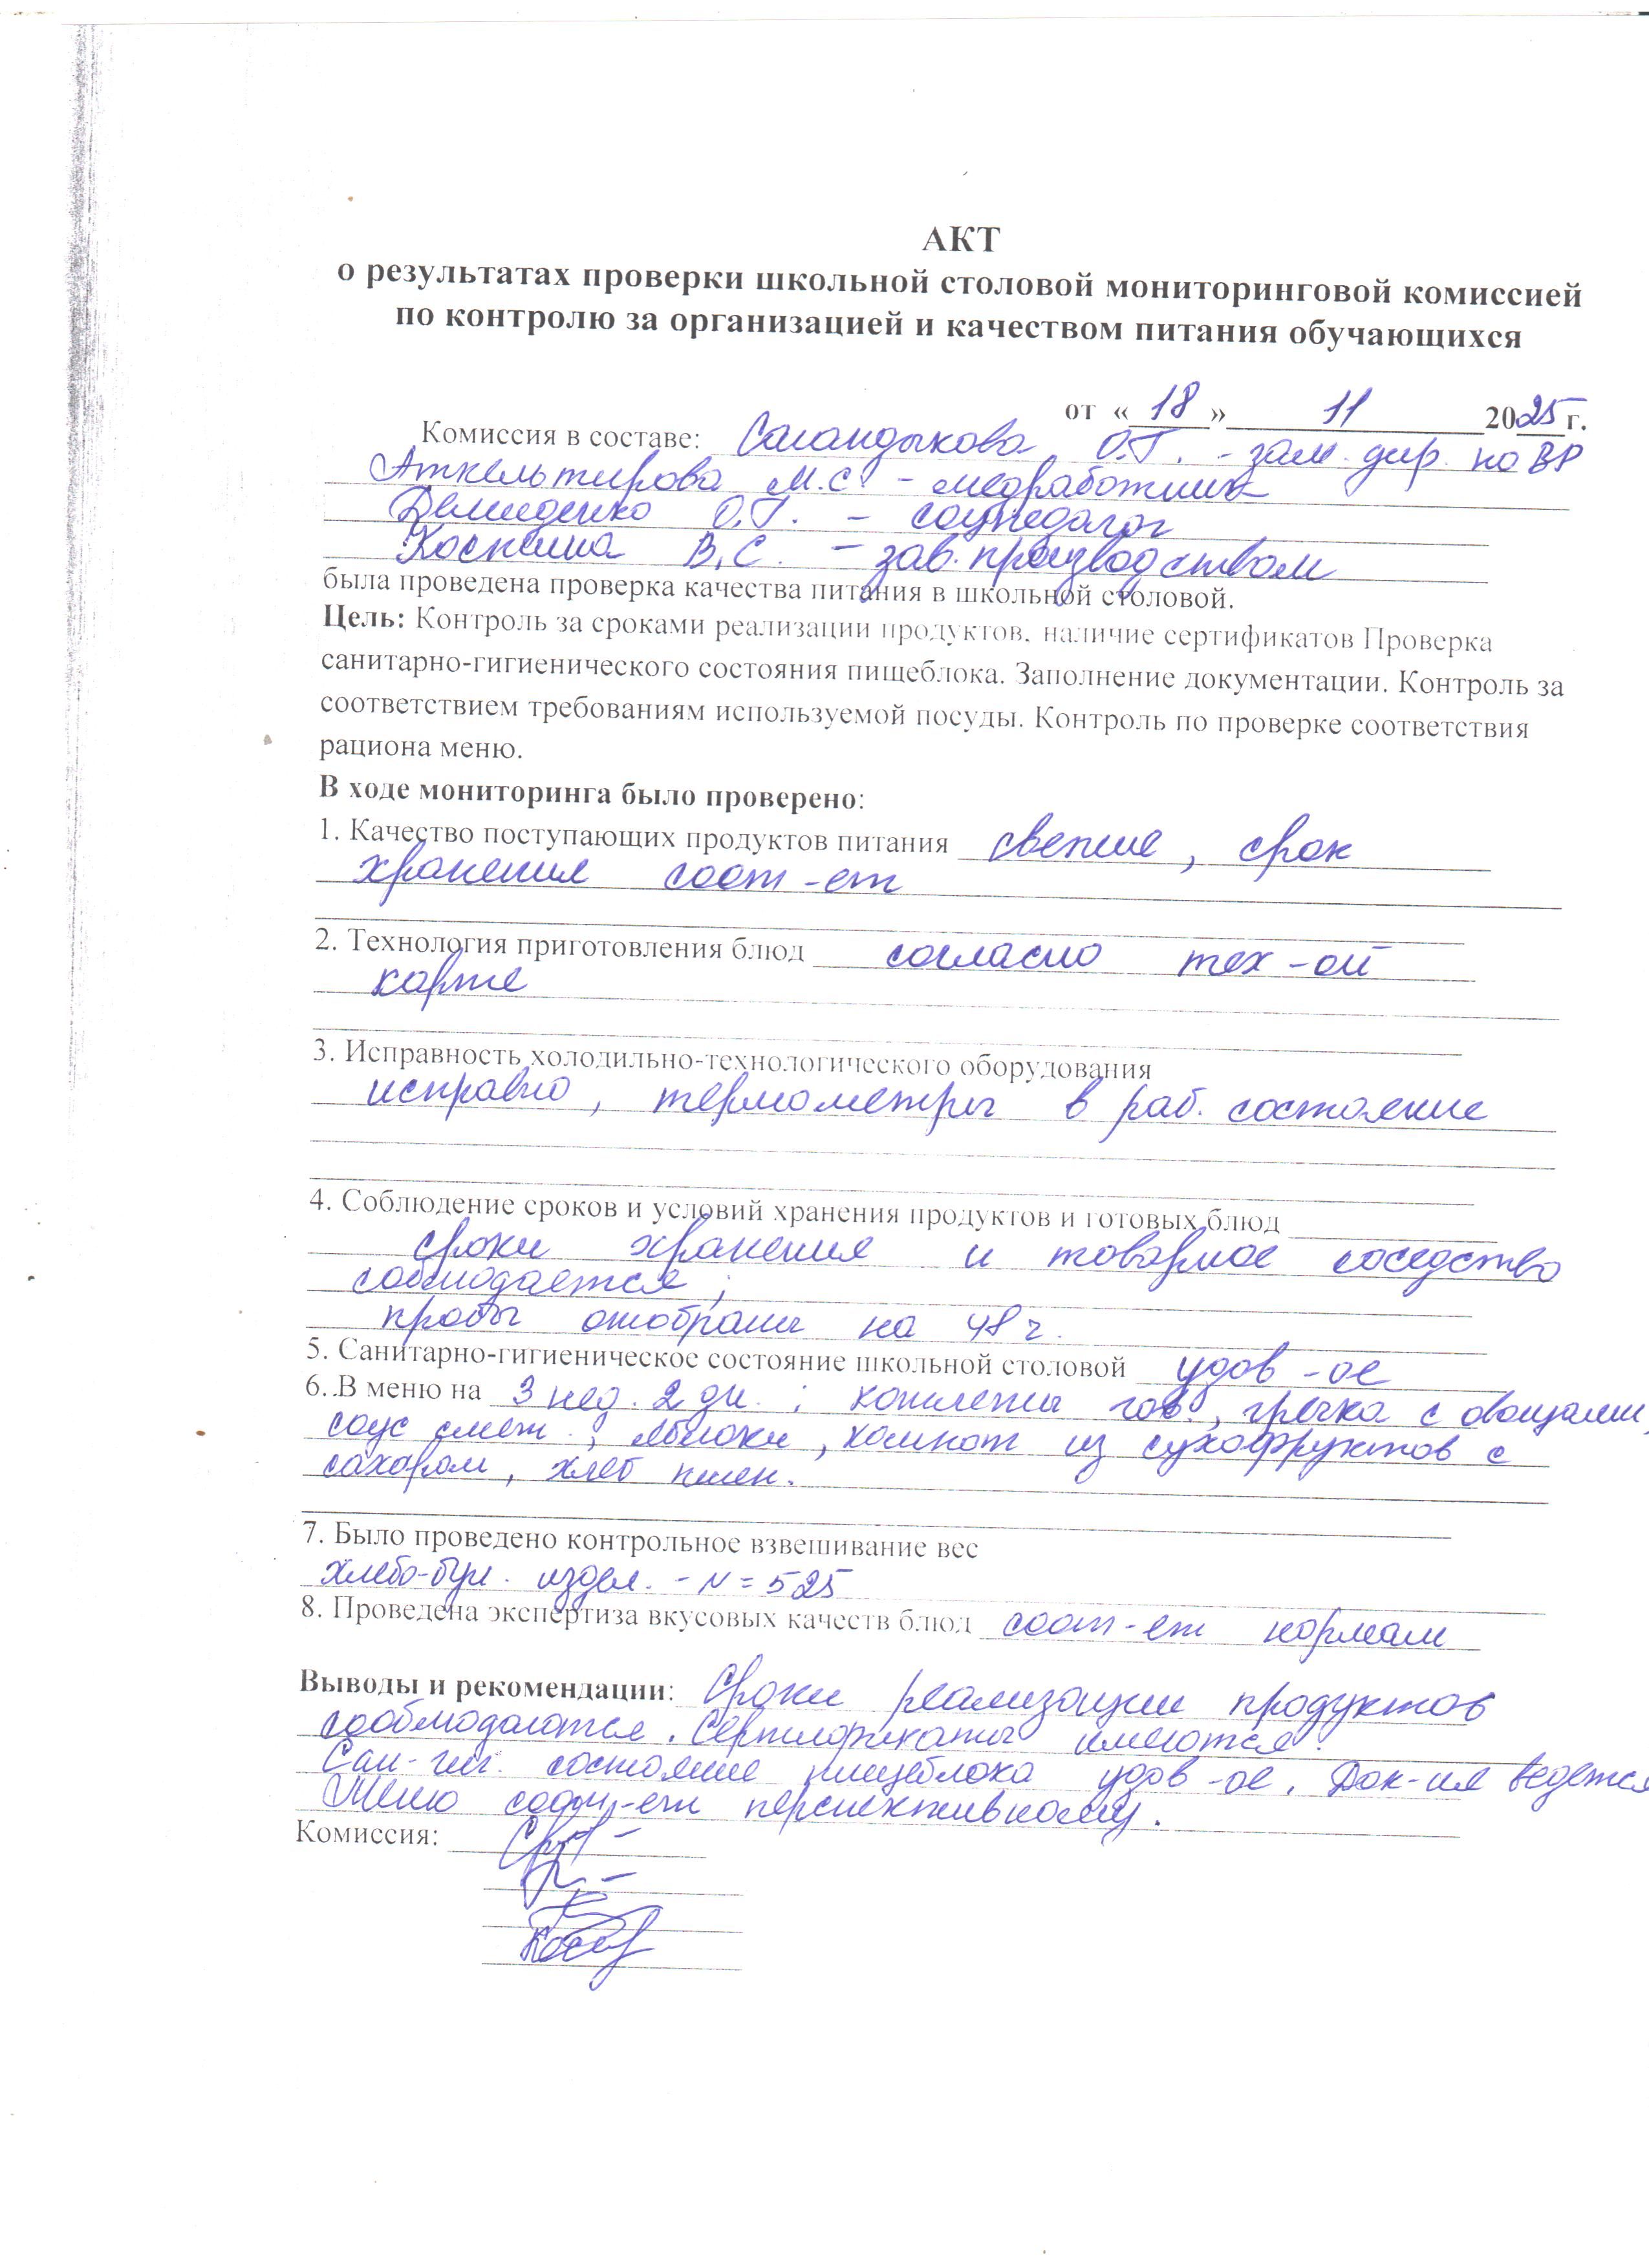 АКТ
о результатах проверки школьной столовой мониторинговой комиссией
по контролю за организацией и качеством питания обучающихся
от «18» 11 2025 г.
Комиссия в составе: Сагандыкова О.Г. - зам. дир. по ВР
Аткельтирова М.С. - медработник
Демиденко О.Г. - соцпедагог
В.С. - зав. производством
была проведена проверка качества питания в школьной столовой.
Цель: Контроль за сроками реализации продуктов, наличие сертификатов Проверка
санитарно-гигиенического состояния пищеблока. Заполнение документации. Контроль за
соответствием требованиям используемой посуды. Контроль по проверке соответствия
рациона меню.
В ходе мониторинга было проверено:
1. Качество поступающих продуктов питания свежие, срок
хранения соот-ет
2. Технология приготовления блюд согласно тех-ой
карте
3. Исправность холодильно-технологического оборудования
исправно, термометры в раб. состояние
4. Соблюдение сроков и условий хранения продуктов и готовых блюд
сроки хранения и товарное соседство
соблюдается;
пробы отобраны на 48 ч.
5. Санитарно-гигиеническое состояние школьной столовой удов-ое
6. .В меню на 3 нед. 2 дн. : котлеты гов., гречка с овощами,
соус смет., яблоки, компот из сухофруктов с
сахаром, хлеб пшен.
7. Было проведено контрольное взвешивание вес
хлебо-бул. издел. - N = 525
8. Проведена экспертиза вкусовых качеств блюд соот-ет нормам
Выводы и рекомендации: Сроки реализации продуктов
сооблюдаются. Сертификаты имеются.
Сан-гиг. состояние пищеблока удов-ое. Док-ия ведется
Меню соот-ет перспективному.
Комиссия: